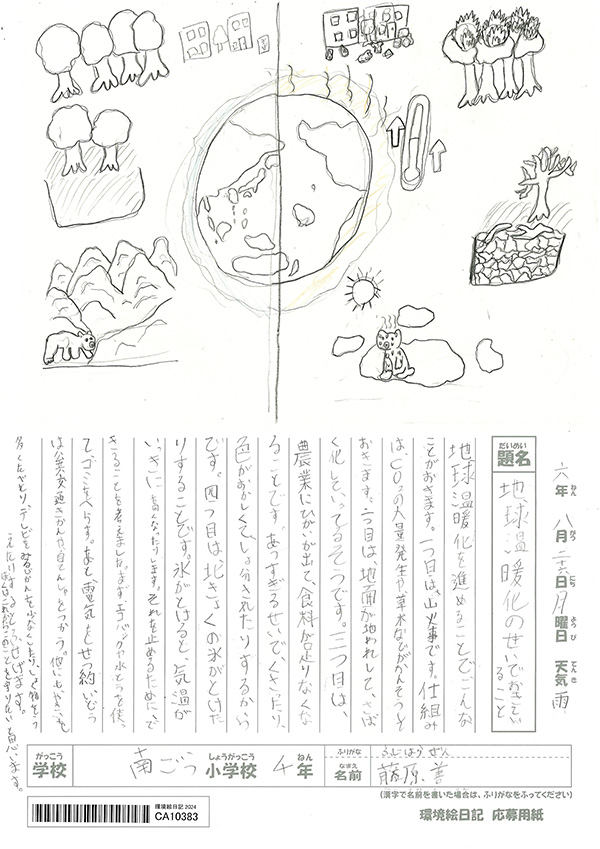 六年 八月 二十六日 月曜日 天気 雨
ねん がつ にち ようび てんき
だいめい
題名
地球温暖化のせいでおきてい
ること
地球温暖化を進めることでこんな
ことがおきます。一つ目は、山火事です。仕組み
は、CO₂の大量発生や草木などがかんそうと
おきます。二つ目は、地面が地われして、さば
く化していってるそうです。三つ目は、
農業にひがいが出て、食料が足りなくな
ることです。あつすぎるせいで、くさったり、
色がおかしくて、しょ分されたりするから
です。四つ目は北きょくの氷がとけた
りすることです。氷がとけると、気温が
いっきに高くなったりします。それを止めるためにで
きることを考えました。まずエコバッグや水とうを使っ
て、ゴミをへらす。あと電気をせつ約いどう
は公共交通きかんや、自てんしゃをつかう。他にもやさいを
多くたべたり、テレビを見る時かんを少なくしたり、しょく物をう
えたりするとふせげます。
ぼくはこれだけのことを守りたいと思います。
がっこう
学校
南ごう
しょうがっこう
小学校
4
ねん
年
ふりがな
ふじはら ぜん
なまえ
名前
藤原 善
(漢字で名前を書いた場合は、ふりがなをふってください)
環境絵日記 2024
CA10383
環境絵日記 応募用紙